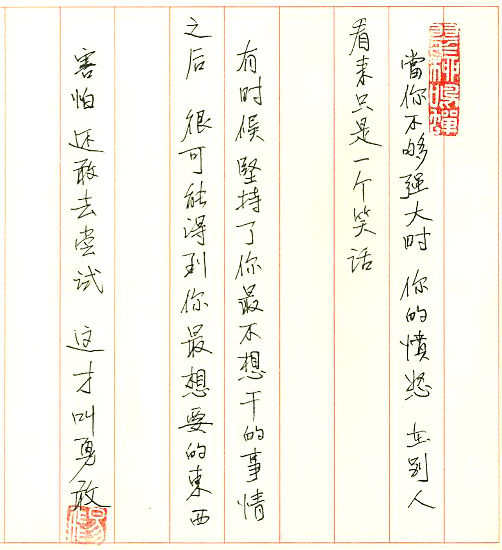 當你不够强大时 你的憤怒 在别人
看来只是一个笑话
有时候堅持了你最不想干的事情
之后 很可能得到你最想要的東西
害怕 还敢去尝试 这才叫勇敢